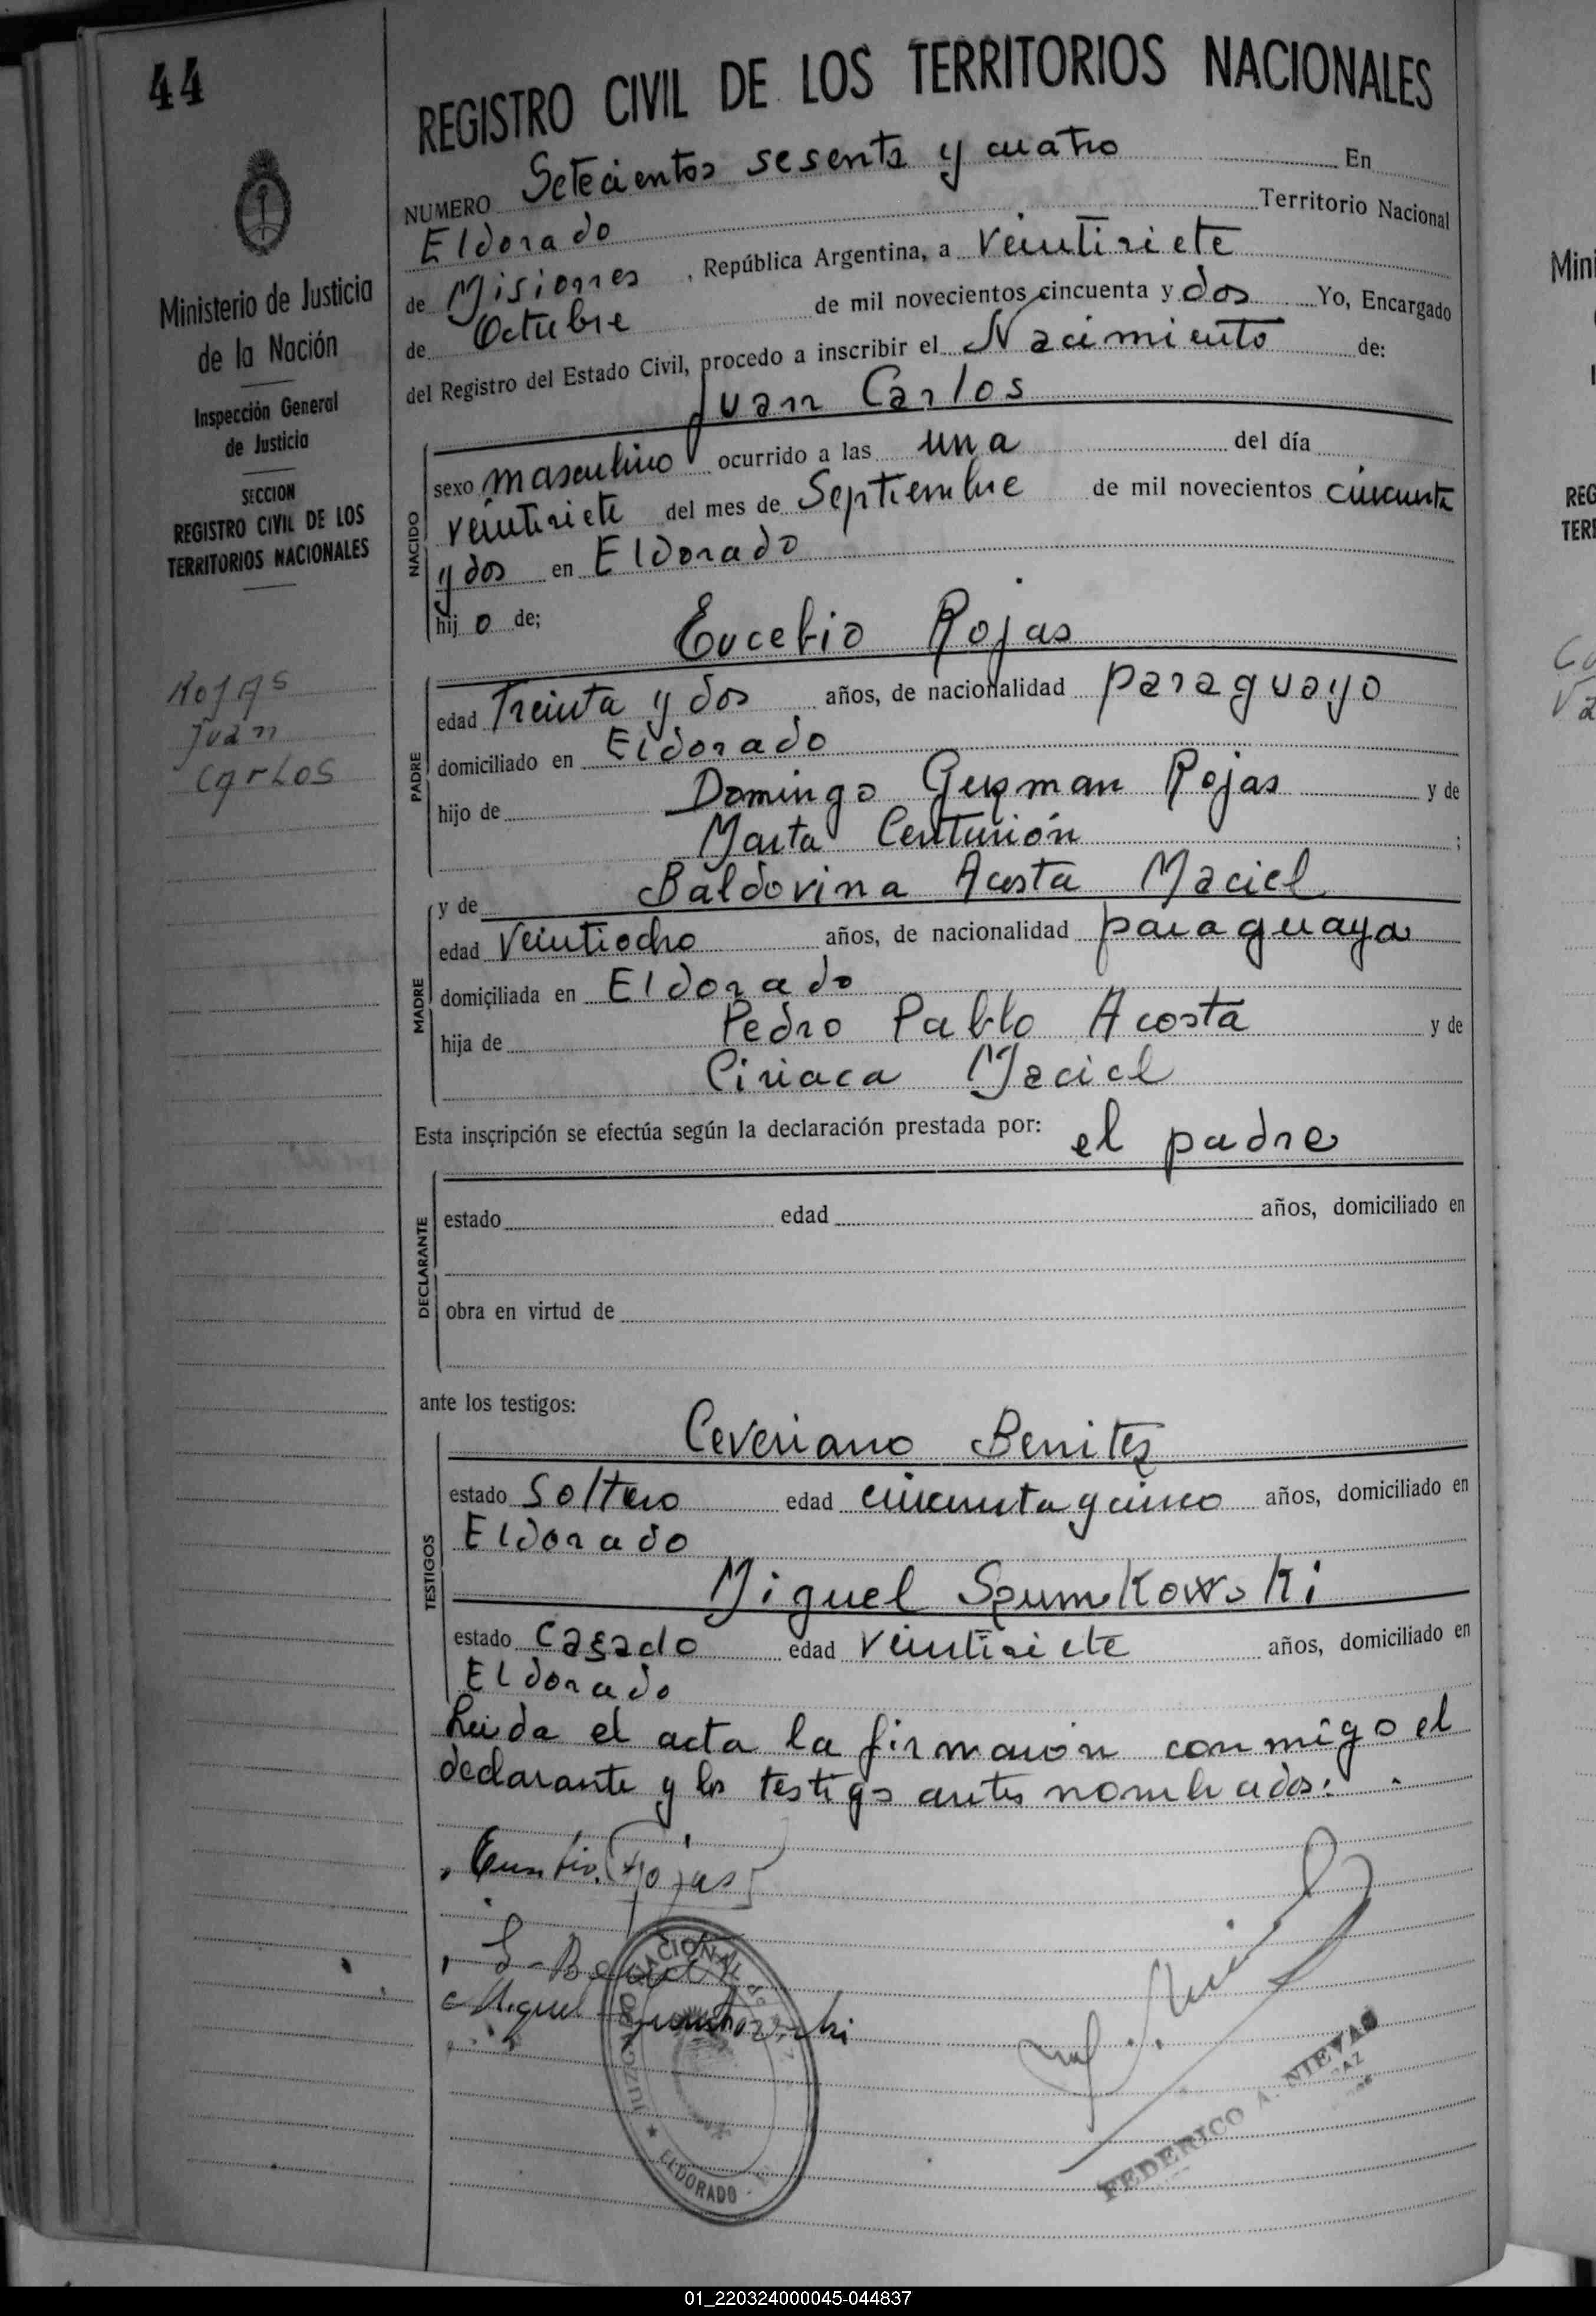 44
REGISTRO CIVIL DE LOS TERRITORIOS NACIONALES
Ministerio de Justicia
de la Nación
Inspección General
de Justicia
SECCION
REGISTRO CIVIL DE LOS
TERRITORIOS NACIONALES
Rojas
Juan
Carlos
NUMERO Setecientos sesenta y cuatro En
Eldorado Territorio Nacional
de Misiones, República Argentina, a veintisiete
de Octubre de mil novecientos cincuenta y dos Yo, Encargado
del Registro del Estado Civil, procedo a inscribir el Nacimiento de:
Juan Carlos
NACIDO
sexo masculino ocurrido a las una del día
veintisiete del mes de Septiembre de mil novecientos cincuenta
y dos en Eldorado
hijo de;
Eucebio Rojas
PADRE
edad Treinta y dos años, de nacionalidad paraguayo
domiciliado en Eldorado
hijo de Domingo Guzman Rojas y de
Marta Centurión ;
y de Baldovina Acosta Maciel
MADRE
edad Veintiocho años, de nacionalidad paraguaya
domiciliada en Eldorado
hija de Pedro Pablo Acosta y de
Ciriaca Maciel
Esta inscripción se efectúa según la declaración prestada por: el padre
DECLARANTE
estado edad años, domiciliado en
obra en virtud de
ante los testigos:
Ceveriano Benitez
TESTIGOS
estado Soltero edad cincuenta y cinco años, domiciliado en
Eldorado
Miguel Szumkowski
estado Casado edad veintisiete años, domiciliado en
Eldorado
Leida el acta la firmaron conmigo el
declarante y los testigos antes nombrados:
Rojas
Miguel
JUZGADO NACIONAL
ELDORADO
FEDERICO A. NIEVAS
PAZ
01_220324000045-044837
Mini
REG
TERI